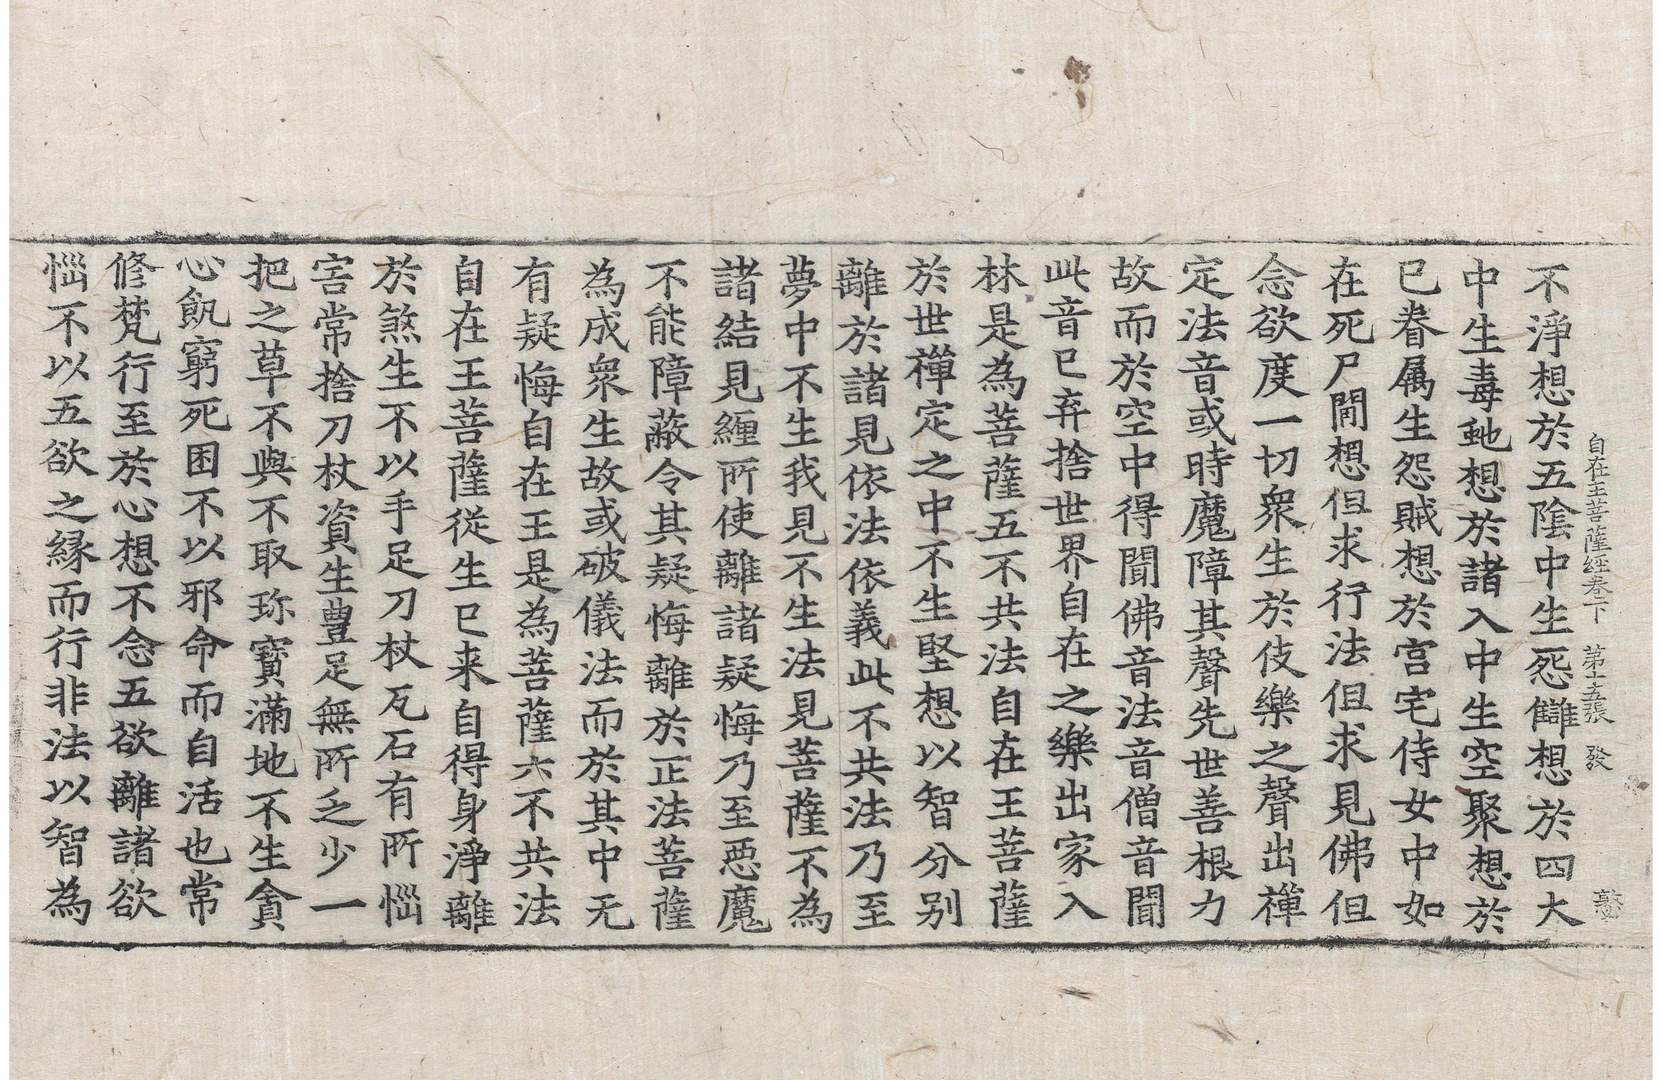 自在王菩薩經卷下 第十五張 發
不淨想於五陰中生怨讎想於四大
中生毒虵想於諸入中生空聚想於
已眷属生怨賊想於宮宅侍女中如
在死尸間想但求行法但求見佛但
念欲度一切衆生於伎樂之聲出禪
定法音或時魔障其聲先世善根力
故而於空中得聞佛音法音僧音聞
此音已弃捨世界自在之樂出家入
林是為菩薩五不共法自在王菩薩
於世禪定之中不生堅想以智分别
離於諸見依法依義此不共法乃至
夢中不生我見不生法見菩薩不為
諸結見纏所使離諸疑悔乃至惡魔
不能障蔽令其疑悔離於正法菩薩
為成衆生故或破儀法而於其中无
有疑悔自在王是為菩薩六不共法
自在王菩薩從生已来自得身淨離
於煞生不以手足刀杖瓦石有所惱
害常捨刀杖資生豊足無所乏少一
把之草不與不取珎寶滿地不生貪
心飢窮死困不以邪命而自活也常
修梵行至於心想不念五欲離諸欲
惱不以五欲之縁而行非法以智為